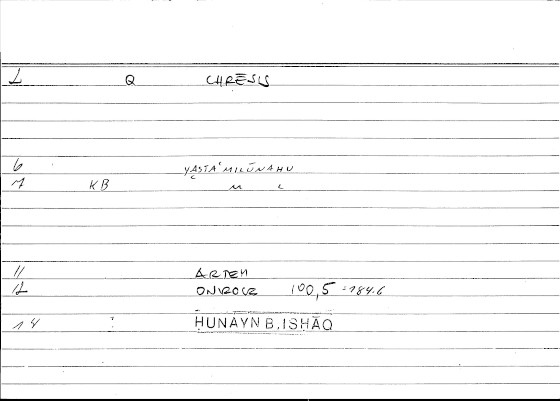 1 Q CHRĒSIS
6 YASTAʿMILŪNAHU
7 KB M L
11 ARTEM
12 ONIROCR 100,5 = 184.6
14 : HUNAYN B. ISHĀQ